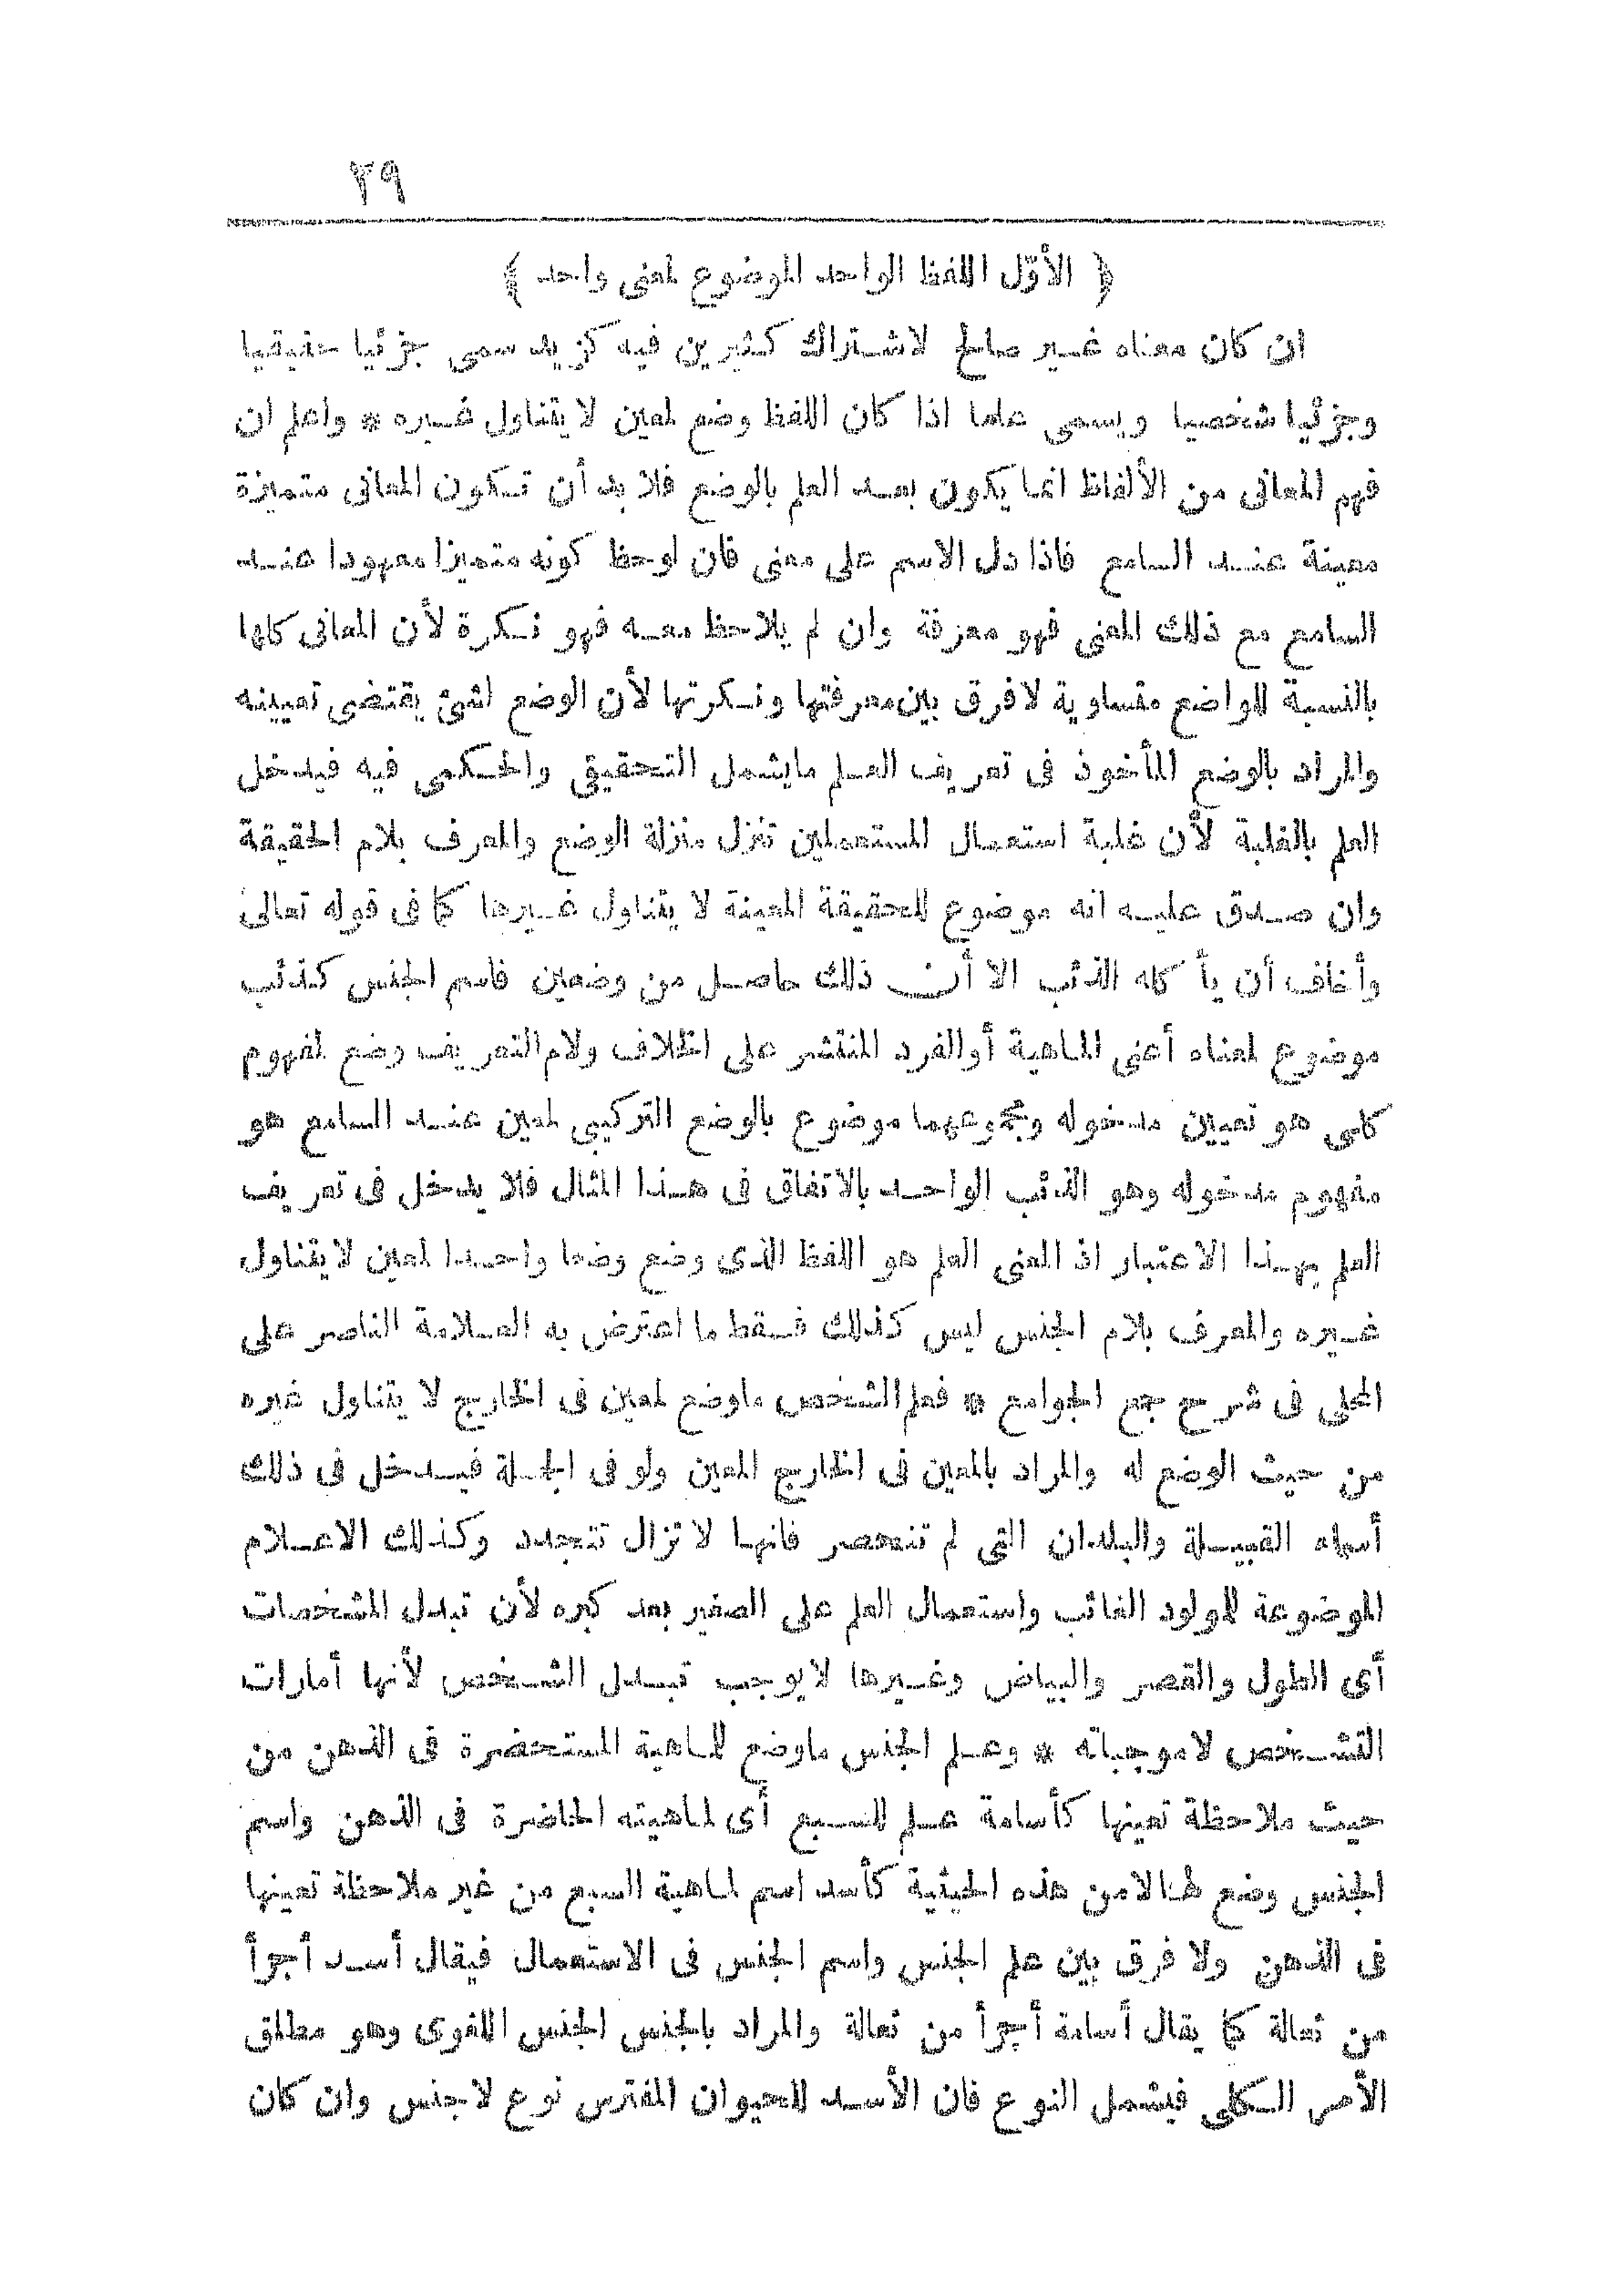 ٣٩
﴿ الأوّل اللفظ الواحد الموضوع لمعنى واحد ﴾
ان كان معناه غير صالح لاشتراك كثيرين فيه كزيد سمى جزئيا حقيقيا
وجزئيا شخصيا ويسمى علما اذا كان اللفظ وضع لمعين لا يتناول غيره * واعلم ان
فهم المعانى من الألفاظ انما يكون بعد العلم بالوضع فلا بد أن تكون المعانى متميزة
معينة عند السامع فاذا دل الاسم على معنى فان لوحظ كونه متميزا معهودا عند
السامع مع ذلك المعنى فهو معرفة وان لم يلاحظ معه فهو نكرة لأن المعانى كلها
بالنسبة للواضع متساوية لا فرق بين معرفتها ونكرتها لأن الوضع لشئ يقتضى تعيينه
والمراد بالوضع المأخوذ فى تعريف العلم ما يشمل التحقيقى والحكمى فيه فيدخل
العلم بالغلبة لأن غلبة استعمال المستعملين تنزل منزلة الوضع والمعرف بلام الحقيقة
وان صدق عليه انه موضوع للحقيقة المعينة لا يتناول غيرها كما فى قوله تعالى
وأخاف أن يأكله الذئب الا أن ذلك حاصل من وضعين فاسم الجنس كذئب
موضوع لمعناه أعنى الماهية أو الفرد المنتشر على الخلاف ولام التعريف وضع لمفهوم
كلى هو تعيين مدخوله ومجموعهما موضوع بالوضع التركيبى لمعين عند السامع هو
مفهوم مدخوله وهو الذئب الواحد بالاتفاق فى هذا المثال فلا يدخل فى تعريف
العلم بهذا الاعتبار اذ المعنى العلم هو اللفظ الذى وضع وضعا واحدا لمعين لا يتناول
غيره والمعرف بلام الجنس ليس كذلك فسقط ما اعترض به العلامة الناصر على
المحلى فى شرح جمع الجوامع * فعلم الشخص ما وضع لمعين فى الخارج لا يتناول غيره
من حيث الوضع له والمراد بالمعين فى الخارج المعين ولو فى الجملة فيدخل فى ذلك
أسماء القبيلة والبلدان التى لم تنحصر فانها لا تزال تتجدد وكذلك الاعلام
الموضوعة للمولود الغائب واستعمال العلم على الصغير بعد كبره لأن تبدل المشخصات
أى الطول والقصر والبياض وغيرها لا يوجب تبدل الشخص لأنها أمارات
التشخص لا موجباته * وعلم الجنس ما وضع للماهية المستحضرة فى الذهن من
حيث ملاحظة تعينها كأسامة علم للسبع أى لماهيته الحاضرة فى الذهن واسم
الجنس وضع لها لا من هذه الحيثية كأسد اسم لماهية السبع من غير ملاحظة تعينها
فى الذهن ولا فرق بين علم الجنس واسم الجنس فى الاستعمال فيقال أسد أجرأ
من ثعالة كما يقال أسامة أجرأ من ثعالة والمراد بالجنس الجنس اللغوى وهو مطلق
الأمر الكلى فيشمل النوع فان الأسد للحيوان المفترس نوع لا جنس وان كان